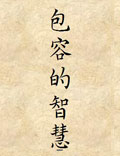 包容的智慧